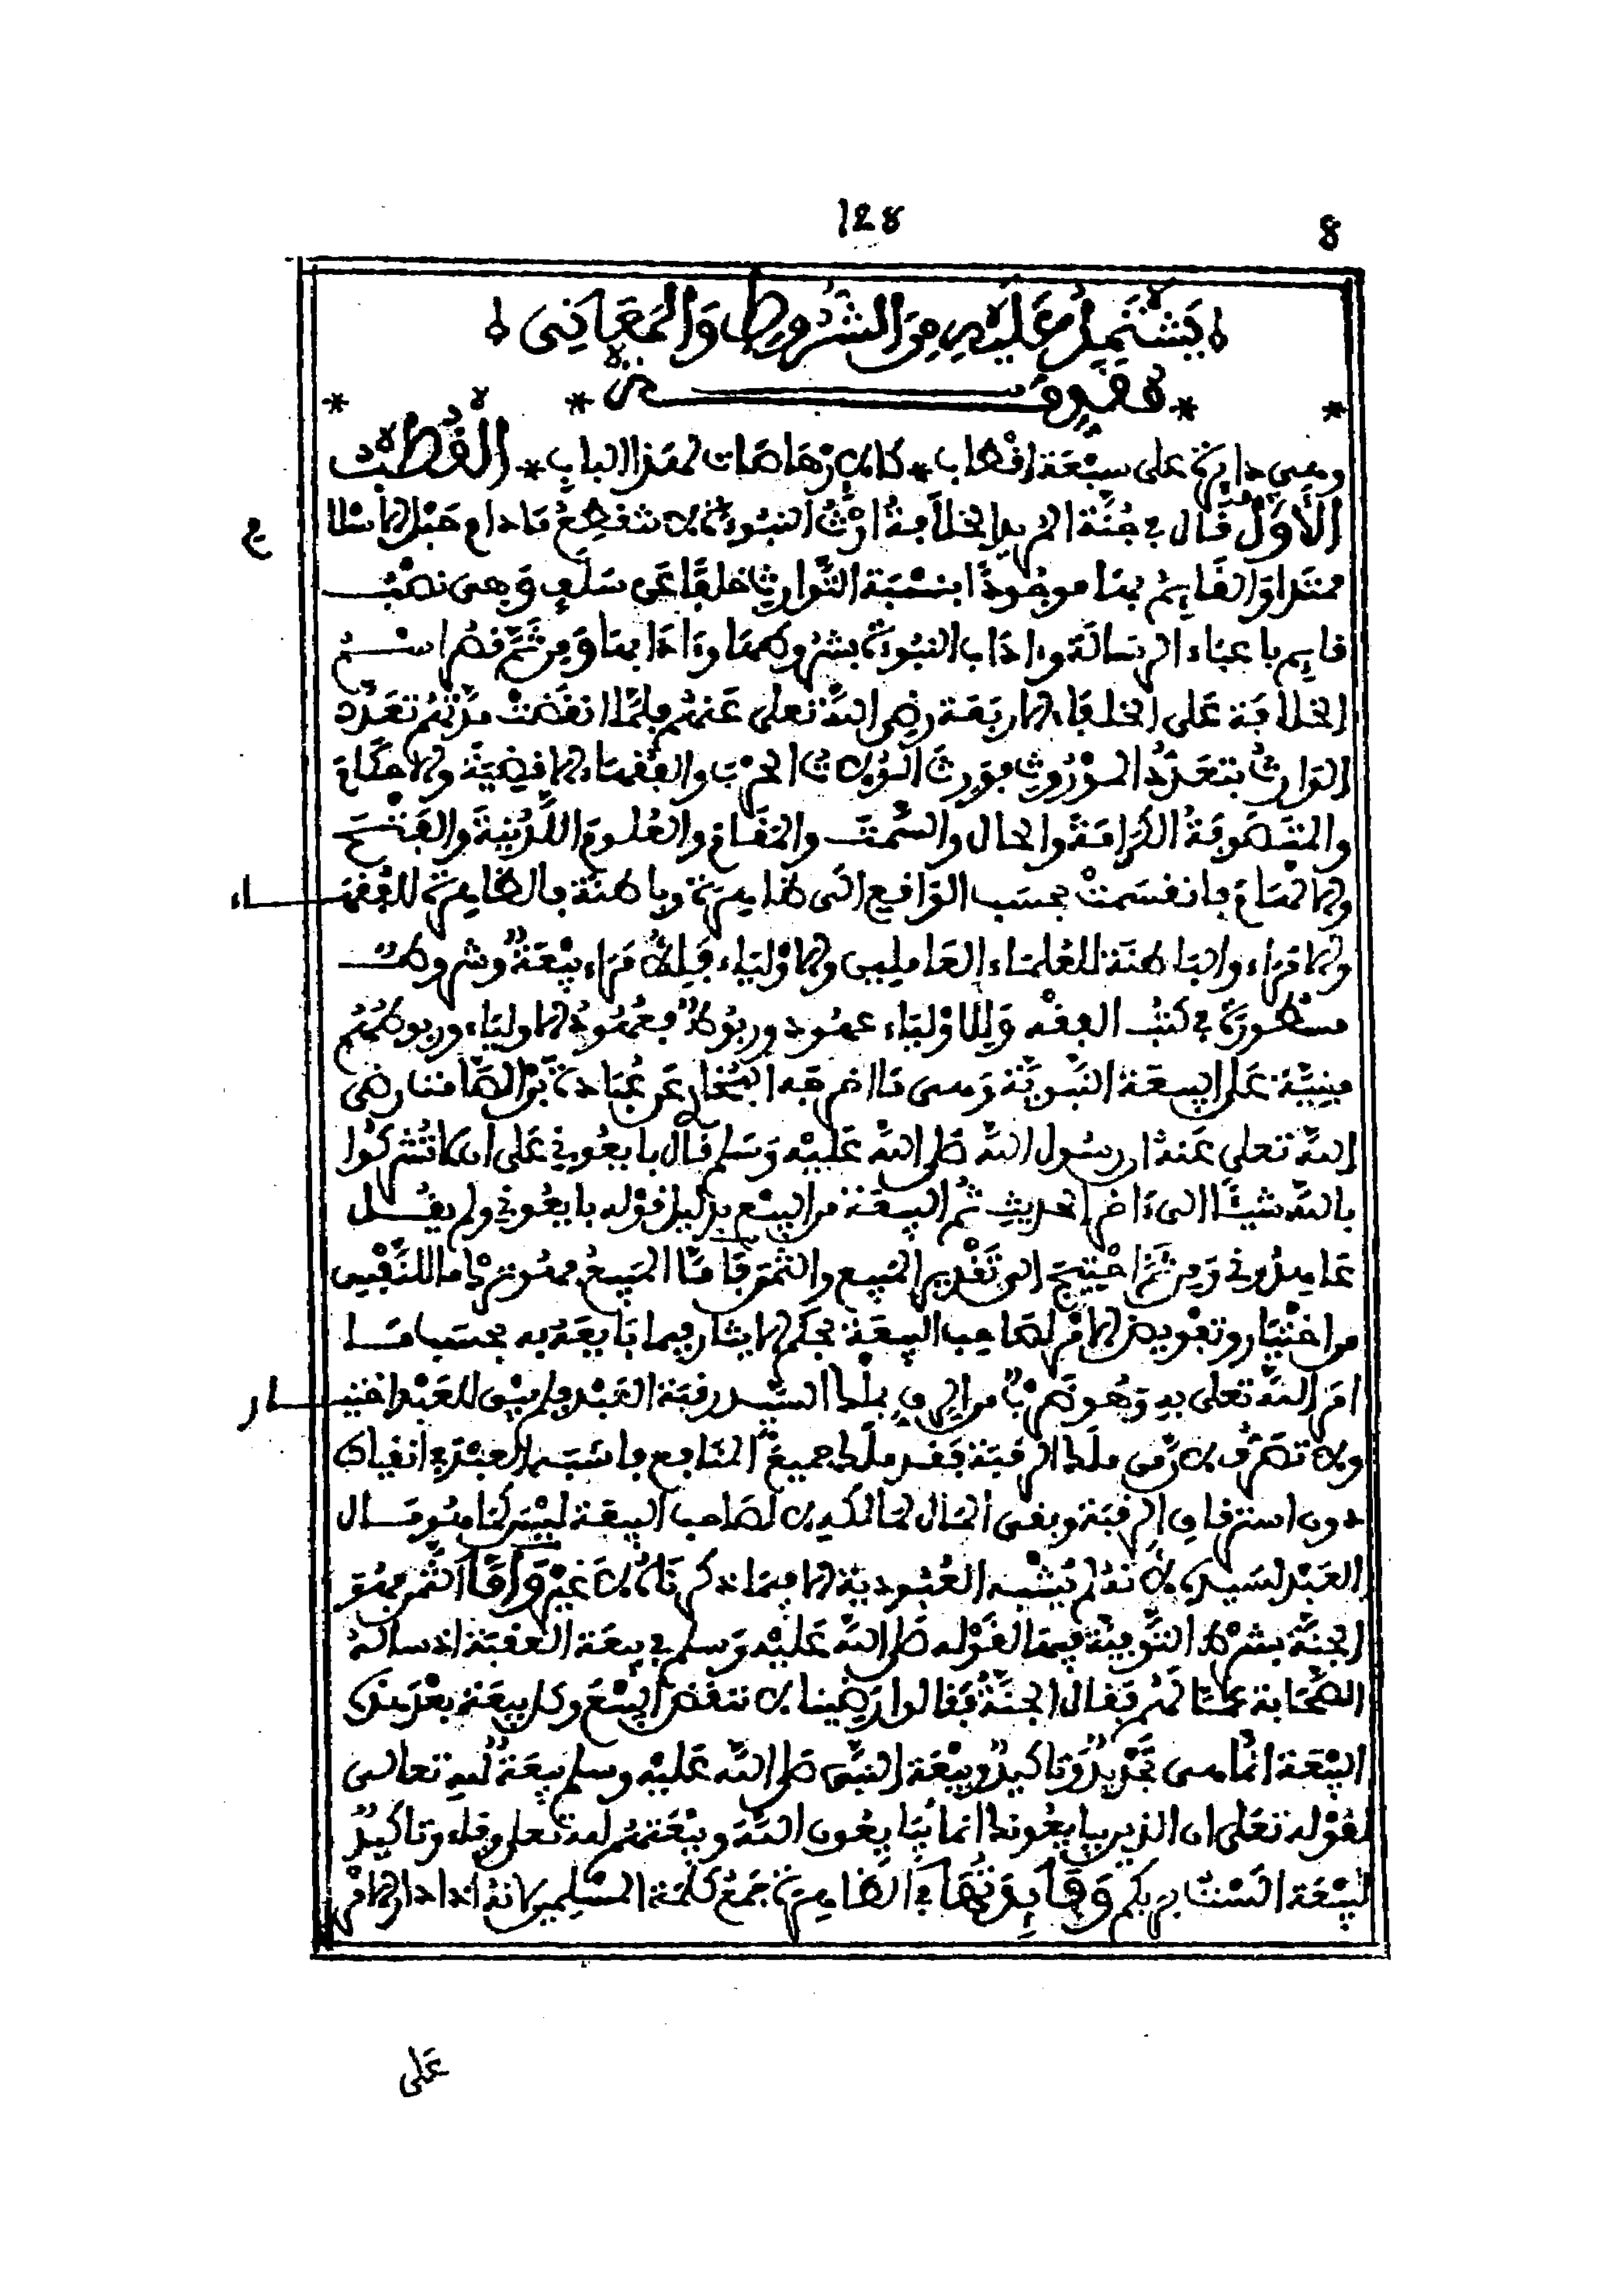 128
8
يَشْتَمِلُ عَلَيْهِ مِنَ الشُّرُوطِ وَالْمَعَانِى
مقدمة
وهي دايرة على سبعة أقطاب * كالإرهاصات لهذا الباب * القُطب
الأَوَّل قال في جُنَّة المريد الخلافة إرث النبوءة لا تنقطع مادام حبل الاسلا
م
ممتدا والقايم بها موجودا بنسبة التوارث خلفا عن سلف وهى نصب
قايم باعباء الرسالة وءاداب النبوءة بشروطها وءادابها ومن ثم قصر اسم
الخلافة على الخلفاء الاربعة رضى الله تعلى عنهم فلما انقضت مدتهم تعدد
الوارث بتعدد الموروث فورث الولاة الحرب والفقهاء الاقضية والاحكام
والمتصوفة الكرامة والحال والسمت والمقام والعلوم اللدنية والفتح
والالهام فانقسمت بحسب الواقع الى ظاهرة وباطنة فالظاهرة للفقهاء
والامراء والباطنة للعلماء العاملين والاولياء فللامراء بيعة وشروط
مسطورة في كتب الفقه وللاولياء عهود وربوط فعهود الاولياء وربوطهم
مبنية على البيعة النبوية وهى ما اخرجه البخاري عن عبادة بن الصامت رضى
الله تعلى عنه ان رسول الله صلى الله عليه وسلم قال بايعوني على أن لا تشركوا
بالله شيئا الى ءاخر الحديث ثم البيعة من البيع بدليل قوله بايعوني ولم يقل
عاهدوني ومن ثم احتيج الى تقدير المبيع والثمن فاما المبيع فهو ترك ما للنفس
من اختيار وتفويض الامر لصاحب البيعة بحكم الايثار فيما بايعه به بحسب ما
امر الله تعلى به وهو نصرف من الرق ملك السيد رقبة العبد فلم يبق للعبد اختيار
ولا تصرف لان من ملك الرقبة فقد ملك جميع المنافع فاشبه العبد في انقياده
دون استرقاق الرقبة وبقى المال لمالكه لا لصاحب البيعة ليس كما هو مال
العبد لسيده لانه لم يشبه العبودية الا فيما ذكرناه لا غير وأما الثمن فهو
الجنة بشرط التوفية فيها لقوله صلى الله عليه وسلم في بيعة العقبة اذ ساله
الصحابة عما لهم فقال الجنة فقالوا رضينا لا ننقض البيع وكل بيعة بعد هذه
البيعة انما هى تجديد وتاكيد وبيعة النبى صلى الله عليه وسلم بيعة لله تعالى
لقوله تعلى ان الذين يبايعونك انما يبايعون الله وبيعتهم لله تعلى وفاء وتاكيد
لبيعة الست بربكم وَفَايِدَتُهَا في الظاهرة جمع كلمة المسلمين لانه اذا دار الامر
على